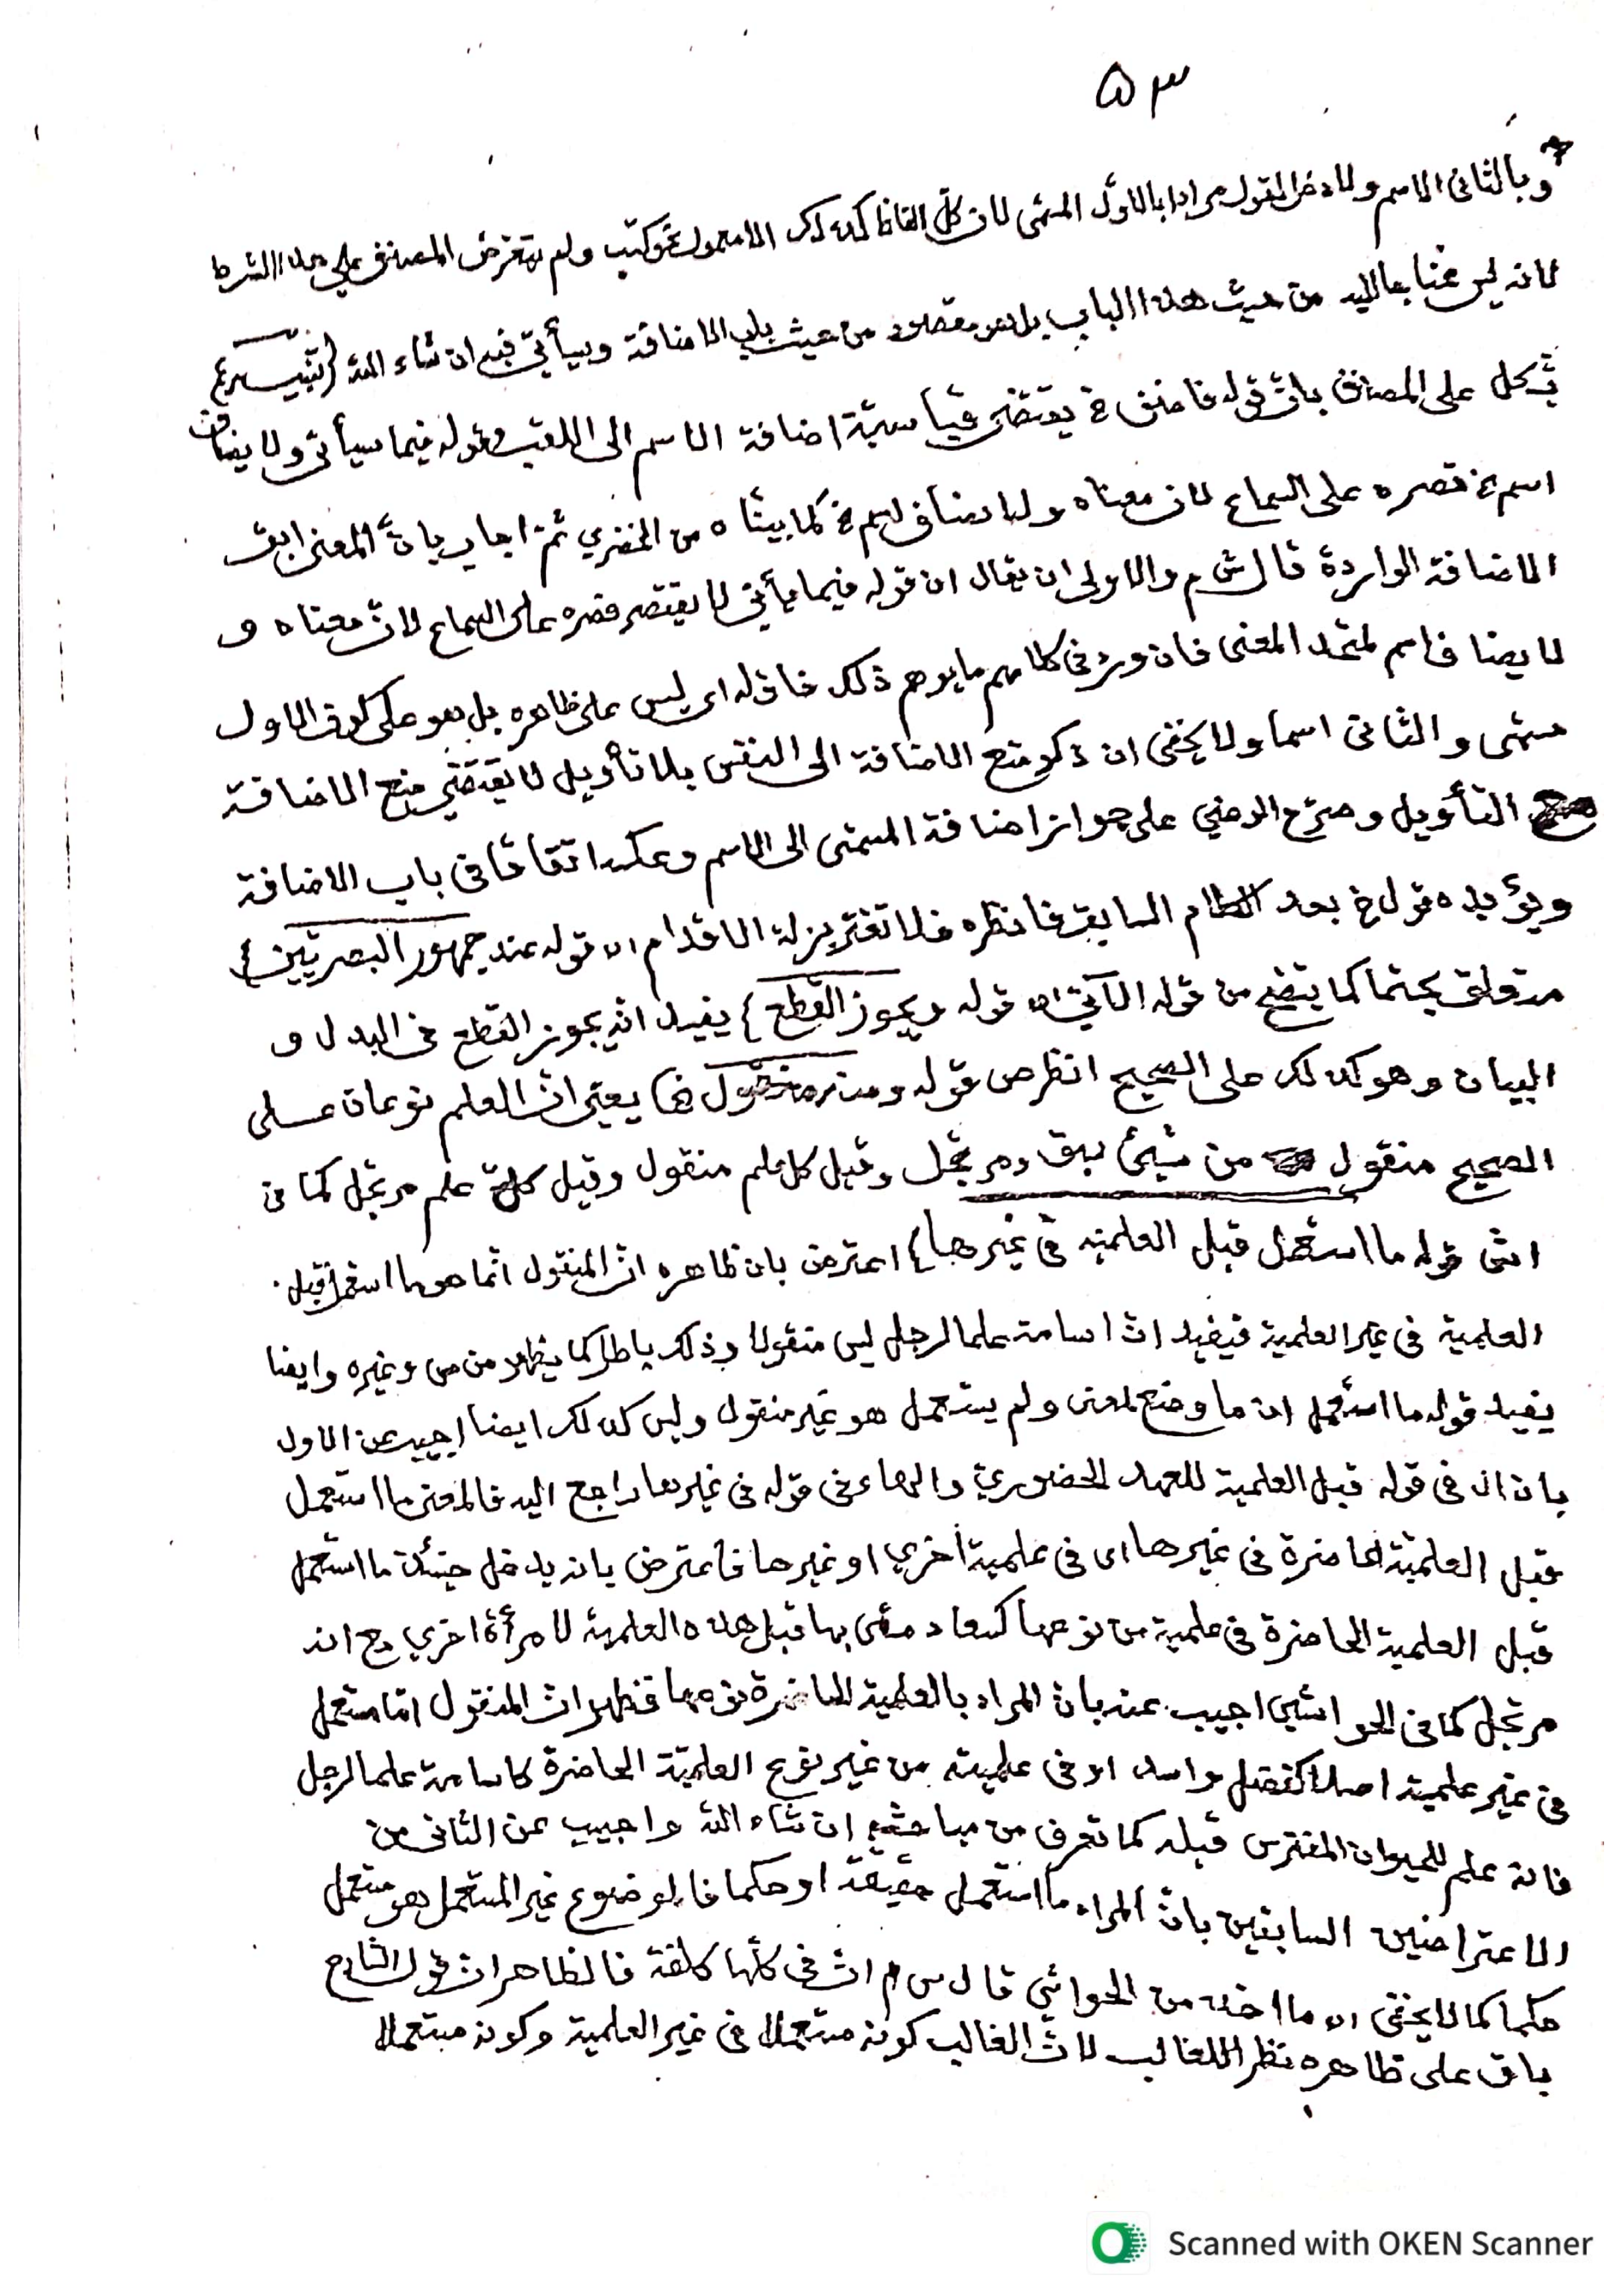 ٥٣
وبالثاني الاسم ولا دخل لقول مرادا بالاول المسمى لان كل الفاظ كذلك الا معمول نحو كتب ولم يتعرض المصنف على هذا الشرط
لانه ليس محتاجا اليه من حيث هذا الباب بل هو مقصود من حيث باب الاضافة وسيأتي فيه ان شاء الله (تنبيه
يشكل على المصنف بان قوله فاضف خ يقتضي قياسية اضافة الاسم الى اللقب وقوله فيما سيأتي ولا يضاف
اسم خ قصره على السماع لان معناه ولا يضاف اسم خ كما بيناه من الخضري ثم اجاب بان المعنى ابق
الاضافة الواردة قال ش م والاولى ان يقال ان قوله فيما يأتي لا يقتصر قصره على السماع لان معناه و
لا يضاف اسم لمتحد المعنى فان ورد في كلامهم ما يوهم ذلك فاوله اى ليس على ظاهره بل هو على كون الاول
مسمى والثانى اسما ولا يخفى ان ذكر منع الاضافة الى النفس بلا تأويل لا يقتضي منع الاضافة
مع التأويل وصرح الرضي على جواز اضافة المسمى الى الاسم وعكسه اتفاقا في باب الاضافة
ويؤيده قول خ بعد الكلام السابق فانظره فلا تغتر بزلة الاقدام اه قوله عند جمهور البصريين}
متعلق بحتما كما يتضح من قوله الآتي اه قوله ويجوز القطع} يفيد انه يجوز القطع في البدل و
البيان وهو كذلك على الصحيح انظر ص قوله ومنه منقول خ} يعني ان العلم نوعان على
الصحيح منقول من شيئ سبق ومرتجل وقيل كل علم منقول وقيل كل علم مرتجل كما في
اش قوله ما استعمل قبل العلمية في غيرها} اعترض بان ظاهره ان المنقول انما هو ما استعمل قبل
العلمية في غير العلمية فيفيد ان اسامة علما لرجل ليس منقولا وذلك باطل كما يظهر من ص وغيره وايضا
يفيد قوله ما استعمل ان ما وضع لمعنى ولم يستعمل هو غير منقول وليس كذلك ايضا اجيب عن الاول
بان ال في قوله قبل العلمية للعهد الحضوري والهاء في قوله في غيرها راجع اليه فالمعنى ما استعمل
قبل العلمية الحاضرة في غيرها اى في علمية اخري او غيرها فاعترض بانه يدخل حينئذ ما استعمل
قبل العلمية الحاضرة في علمية من نوعها كسعاد مسمى بها قبل هذه العلمية لامرأة اخري مع انه
مرتجل كما في الحواشي اجيب عنه بان المراد بالعلمية الحاضرة نوعها فظهر ان المنقول اما مستعمل
في غير علمية اصلا كفضل واسد او في علمية من غير نوع العلمية الحاضرة كاسامة علما لرجل
فانه علم للحيوان المفترس قبله كما تعرف من مباحثه ان شاء الله واجيب عن الثاني من
الاعتراضين السابقين بان المراد ما استعمل حقيقة او حكما فالموضوع غير المستعمل هو مستعمل
حكما كما لا يخفى اه ما اخذ من الحواشي قال س م ان في كلها كلفة فالظاهر ان قول الشارح
باق على ظاهره نظرا للغالب لان الغالب كونه مستعملا في غير العلمية وكونه مستعملا
Scanned with OKEN Scanner